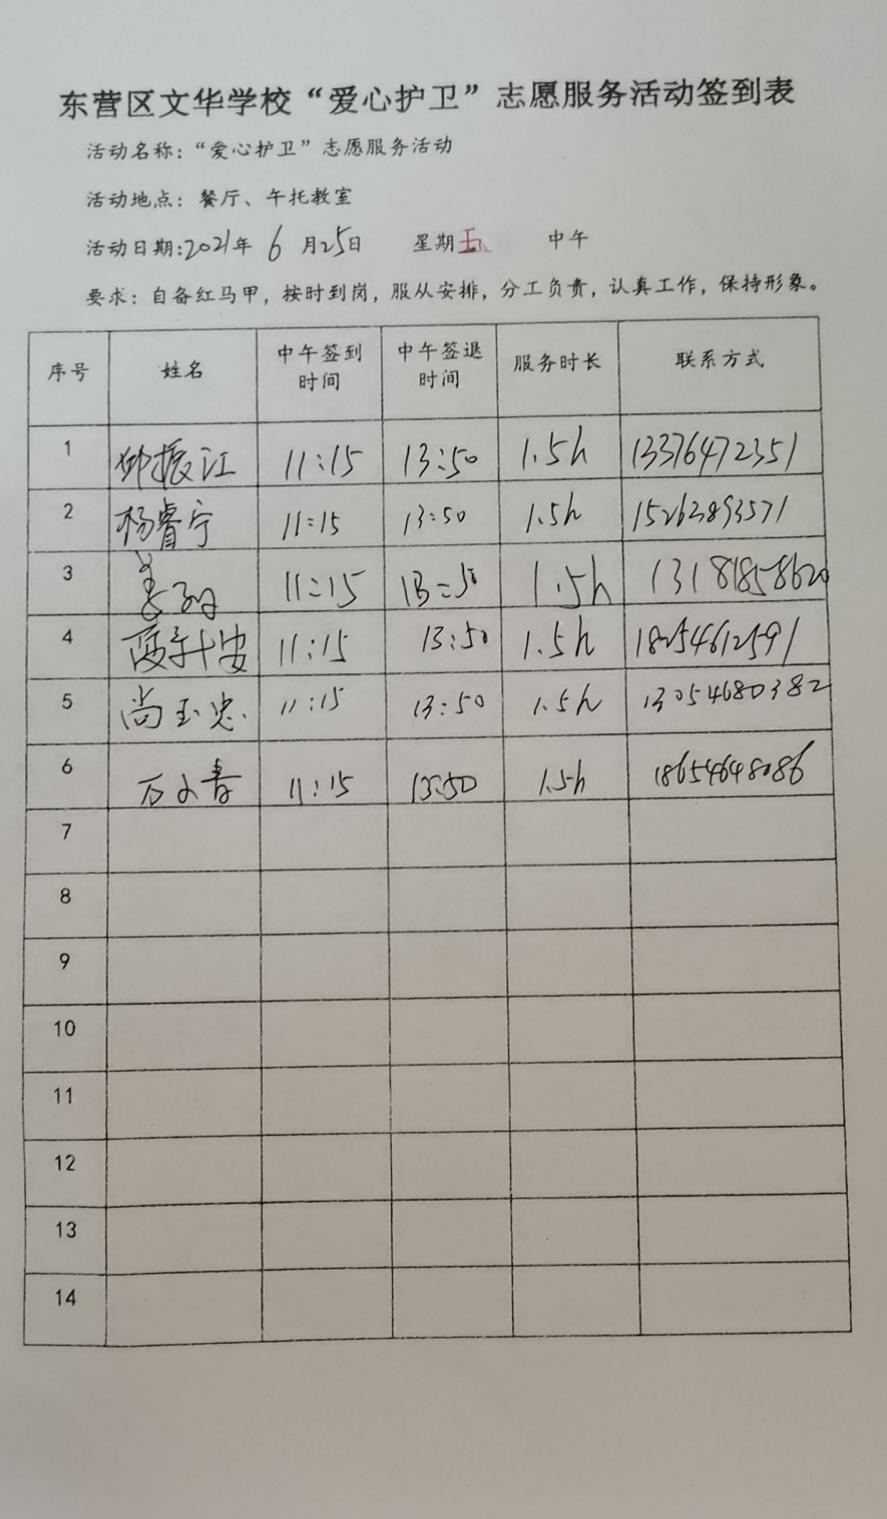 东营区文华学校“爱心护卫”志愿服务活动签到表
活动名称：“爱心护卫”志愿服务活动
活动地点：餐厅、午托教室
活动日期:2021年 6 月25日 星期五 中午
要求：自备红马甲，按时到岗，服从安排，分工负责，认真工作，保持形象。
序号 姓名 中午签到时间 中午签退时间 服务时长 联系方式
1 钟振江 11:15 13:50 1.5h 13376472351
2 杨睿宁 11:15 13:50 1.5h 15262893571
3 11:15 13:50 1.5h 13181858620
4 11:15 13:50 1.5h 18254612591
5 尚玉忠 11:15 13:50 1.5h 13054680382
6 万文青 11:15 13:50 1.5h 18654648086
7
8
9
10
11
12
13
14